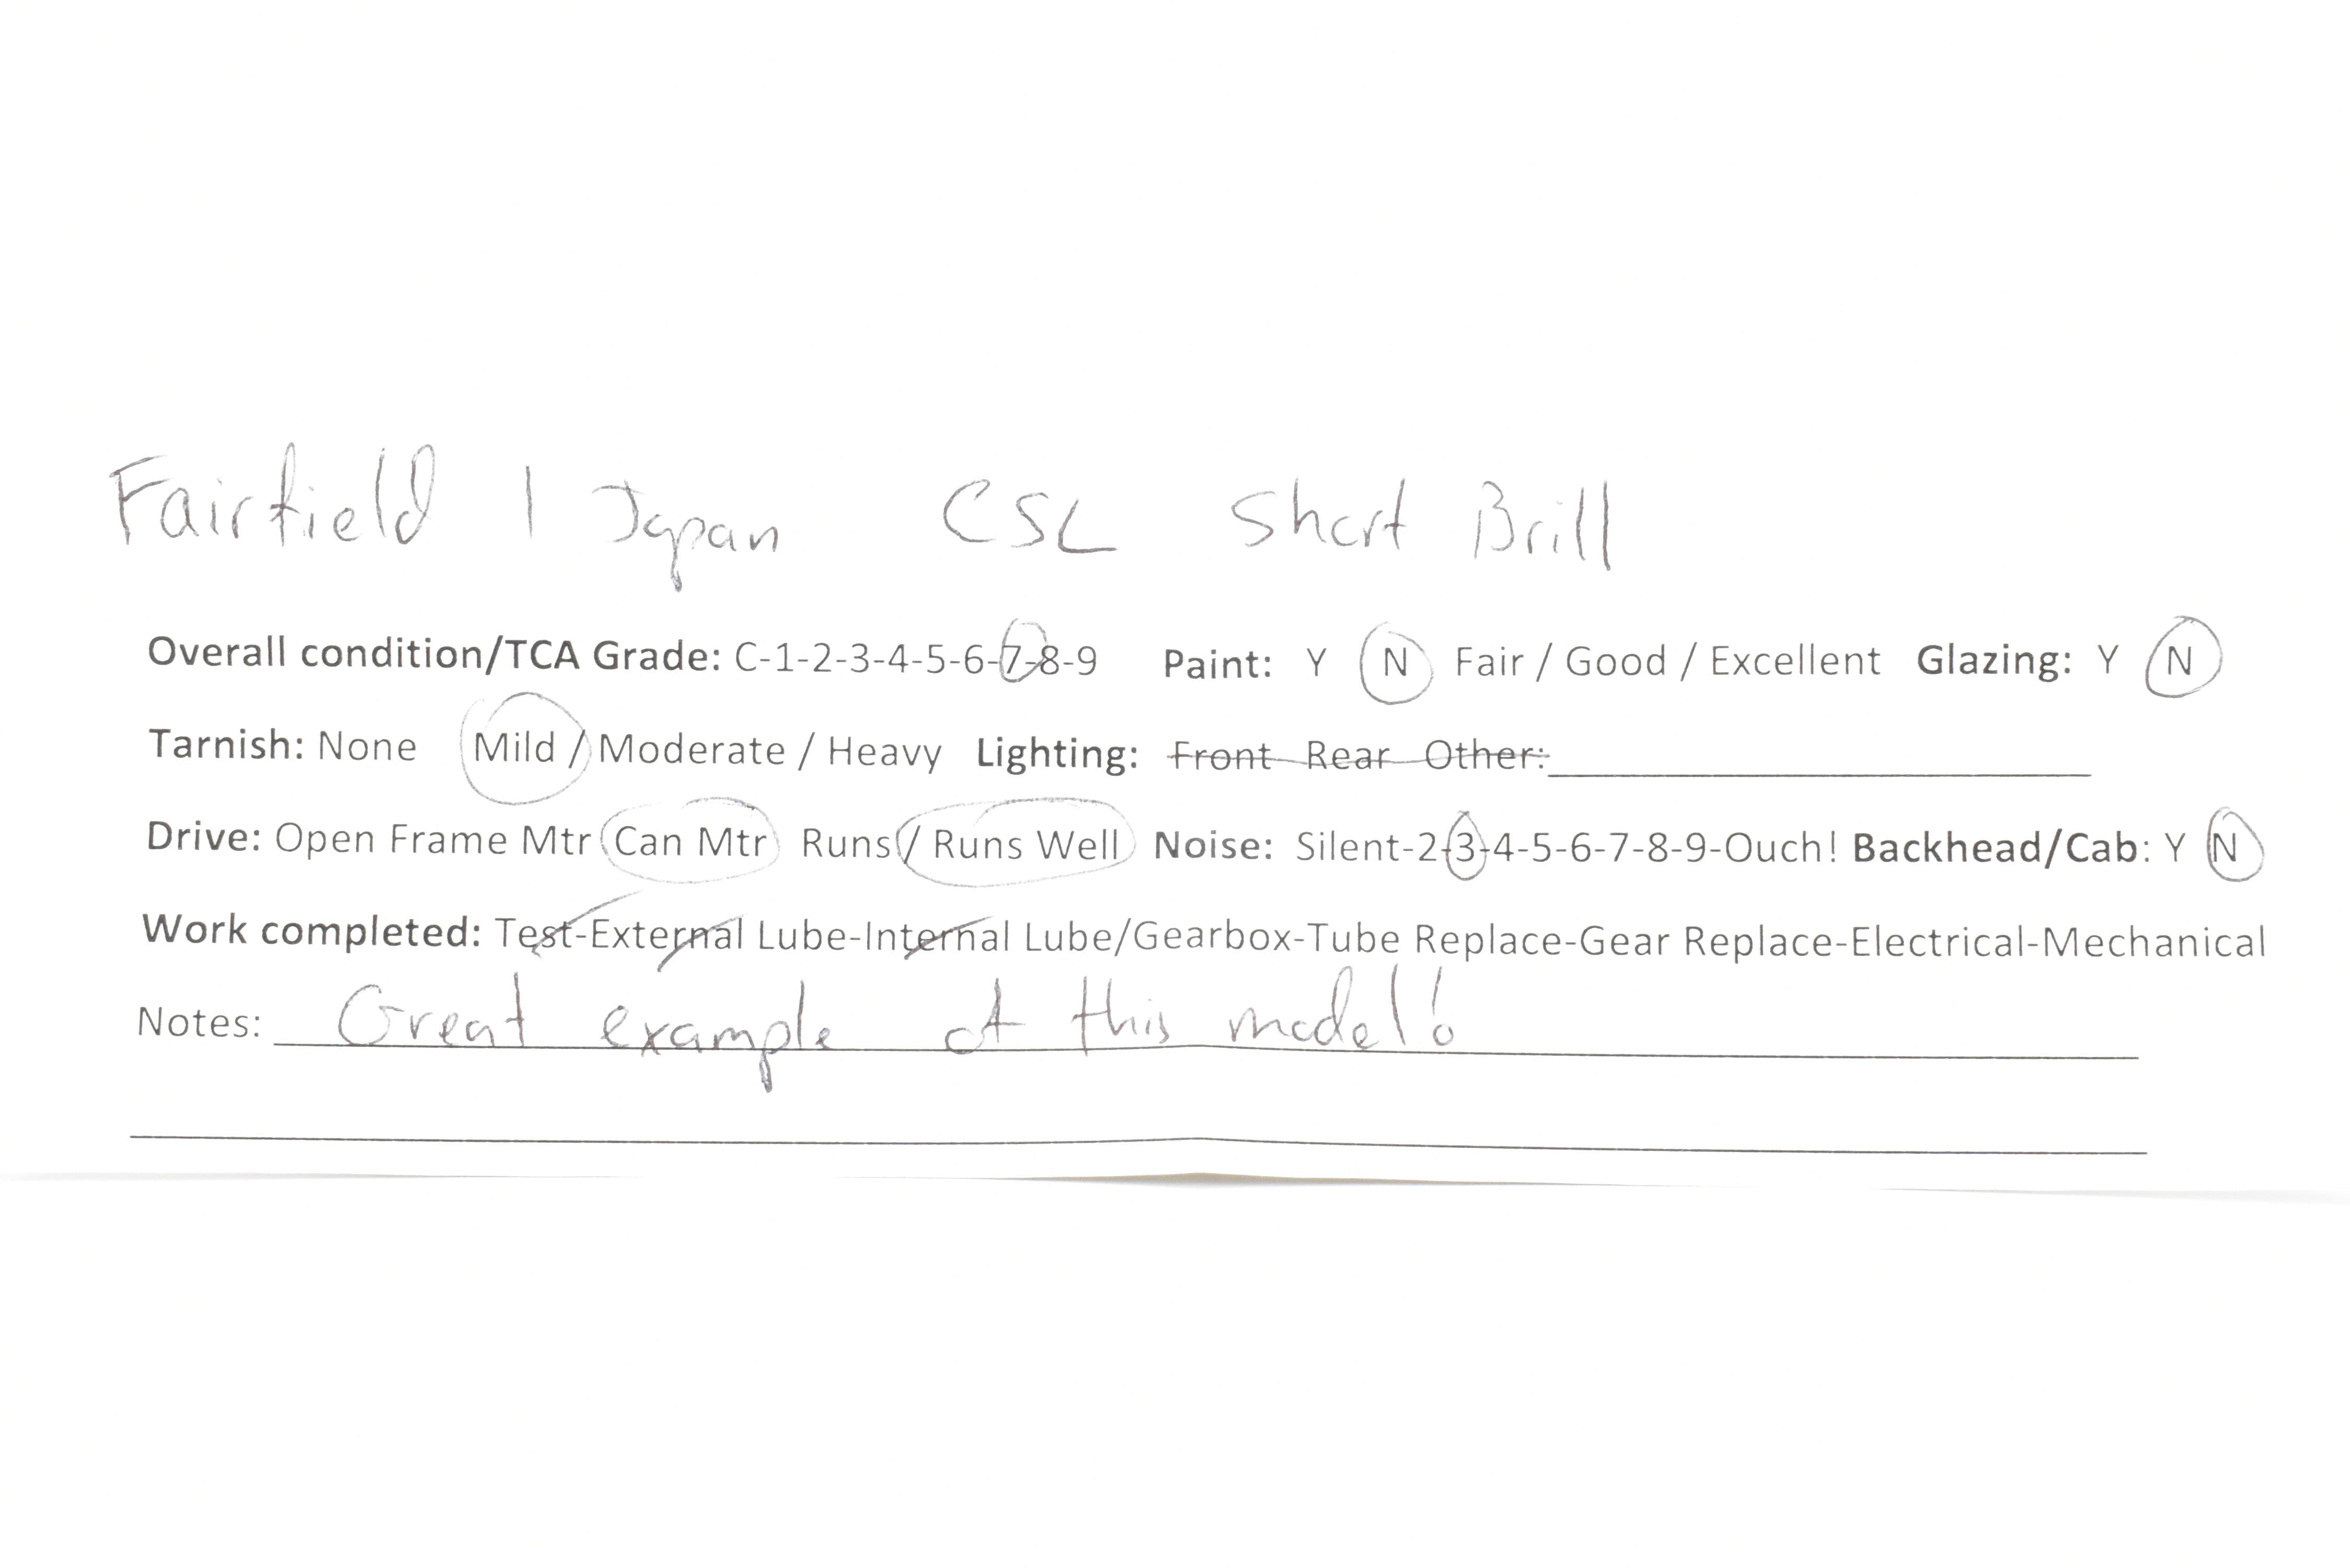 Fairfield / Japan CSL Short Brill
Overall condition/TCA Grade: C-1-2-3-4-5-6-7-8-9 Paint: Y N Fair / Good / Excellent Glazing: Y N
Tarnish: None Mild / Moderate / Heavy Lighting: Front Rear Other:
Drive: Open Frame Mtr Can Mtr Runs / Runs Well Noise: Silent-2-3-4-5-6-7-8-9-Ouch! Backhead/Cab: Y N
Work completed: Test-External Lube-Internal Lube/Gearbox-Tube Replace-Gear Replace-Electrical-Mechanical
Notes: Great example of this model!